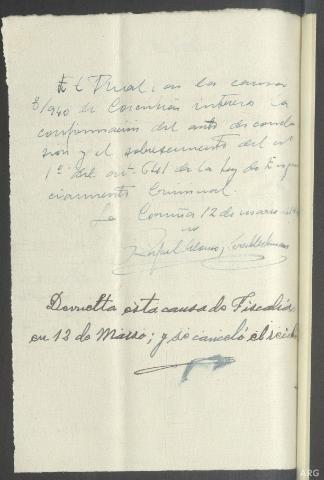 El Fiscal, en la causa
8/940 de Corcubión interesa la
confirmación del auto de conclu
sión y el sobreseimiento del nº
1º del art. 641 de la Ley de Enjui
ciamiento Criminal.
La Coruña 12 de marzo de
Rafael Alonso
Devuelta esta causa de Fiscalía
en 13 de Marzo; y se canceló el recibo
ARG